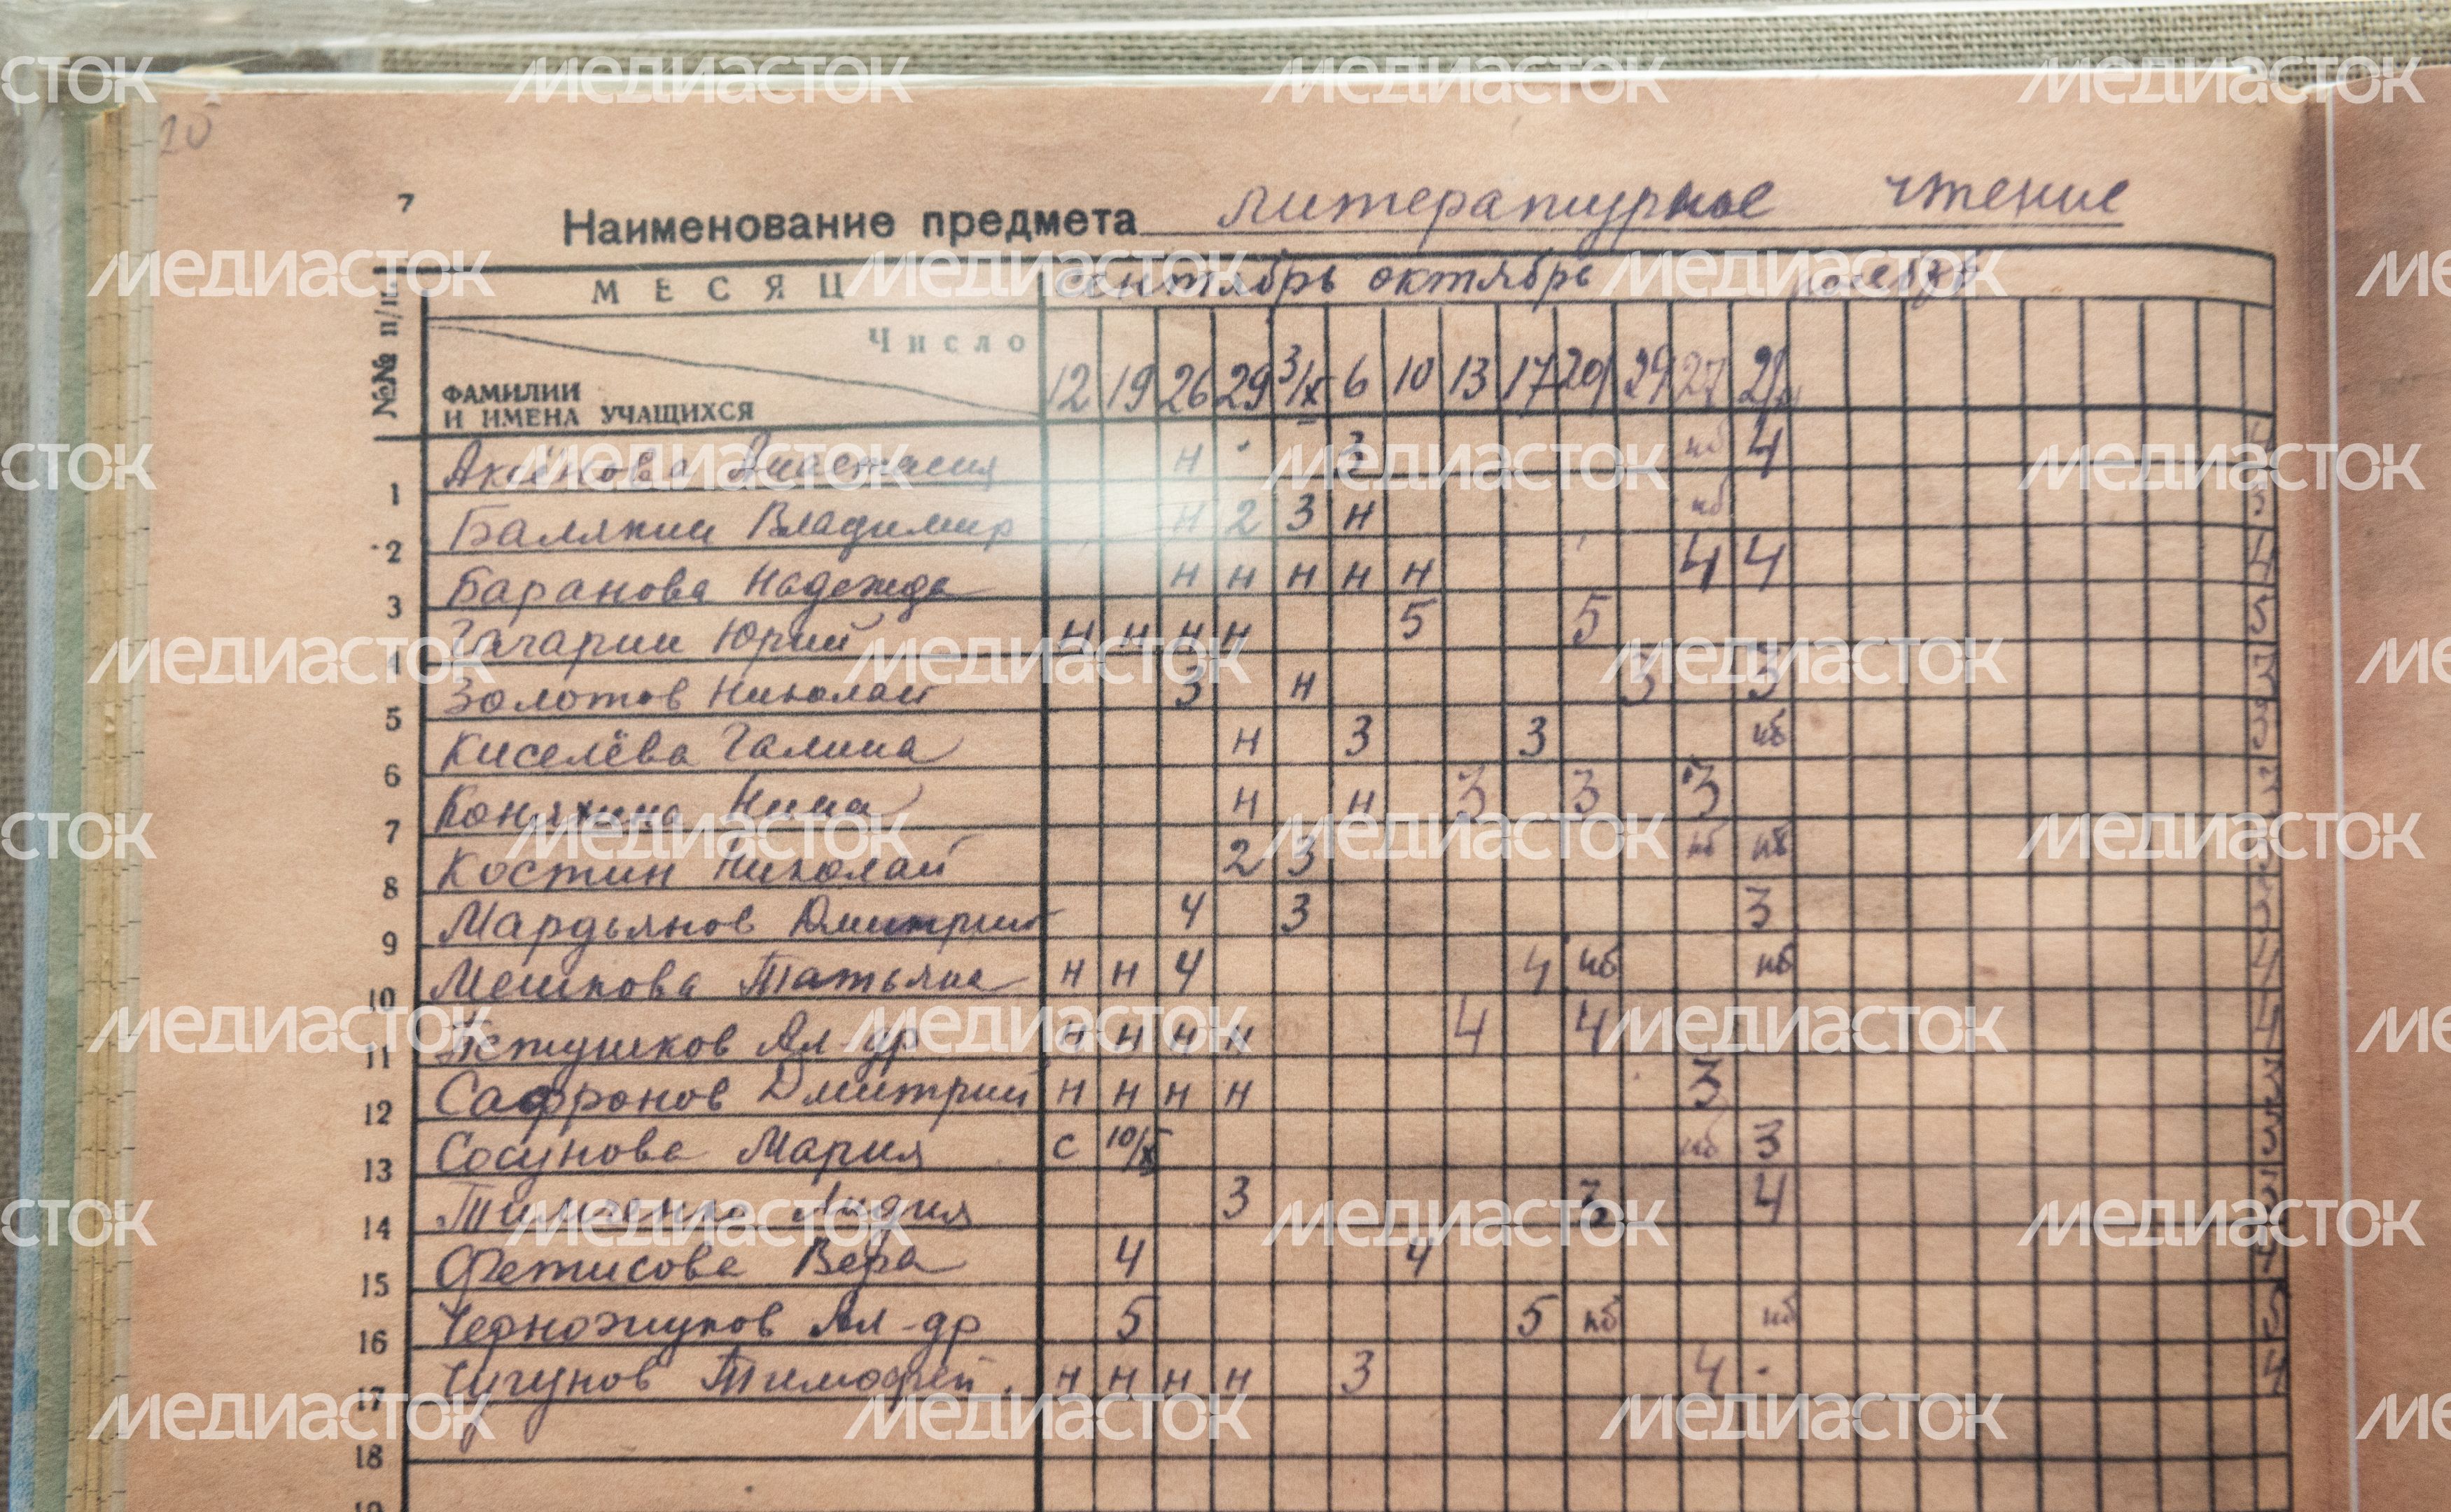 20
7
Наименование предмета литературное чтение
№№ п/п МЕСЯЦ сентябрь октябрь ноябрь
Число
ФАМИЛИИ И ИМЕНА УЧАЩИХСЯ
12 19 26 29 3/X 6 10 13 17 20 24 27
1 Аксёнова Анастасия н 3 нб 4 4
2 Балякин Владимир н 2 3 н нб 3
3 Баранова Надежда н н н н н 4 4 4
4 Гагарин Юрий н н н н 5 5 5
Золотов Николай 3 н 3 3 3
5
Киселёва Галина н 3 3 нб 3
6
Конякина Нина н н 3 3 3 3
7
Костин Николай 2 3 нб нб 3
8
Мардьянов Дмитрий 4 3 3 3
9
Мешкова Татьяна н н 4 4 нб нб 4
10
Петушков Ал-др н н н н 4 4 4
11
Сафронов Дмитрий н н н н 3 3
12
Сосунова Мария с 10/X нб 3 3
13
Тимченко Лидия 3 3 4 3
14
Фетисова Вера 4 4 4
15
Черножуков Ал-др 5 5 нб нб 5
16
Чугунов Тимофей н н н н 3 4 4
17
18
19
МЕДИАСТОК